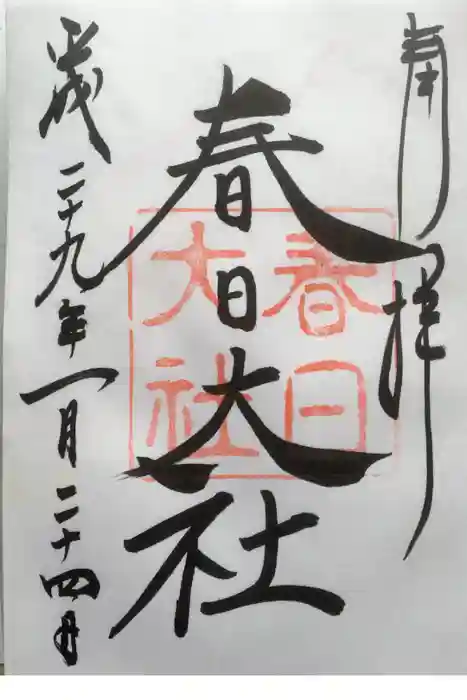 奉拝
春日大社
春日大社
平成二十九年一月二十四日